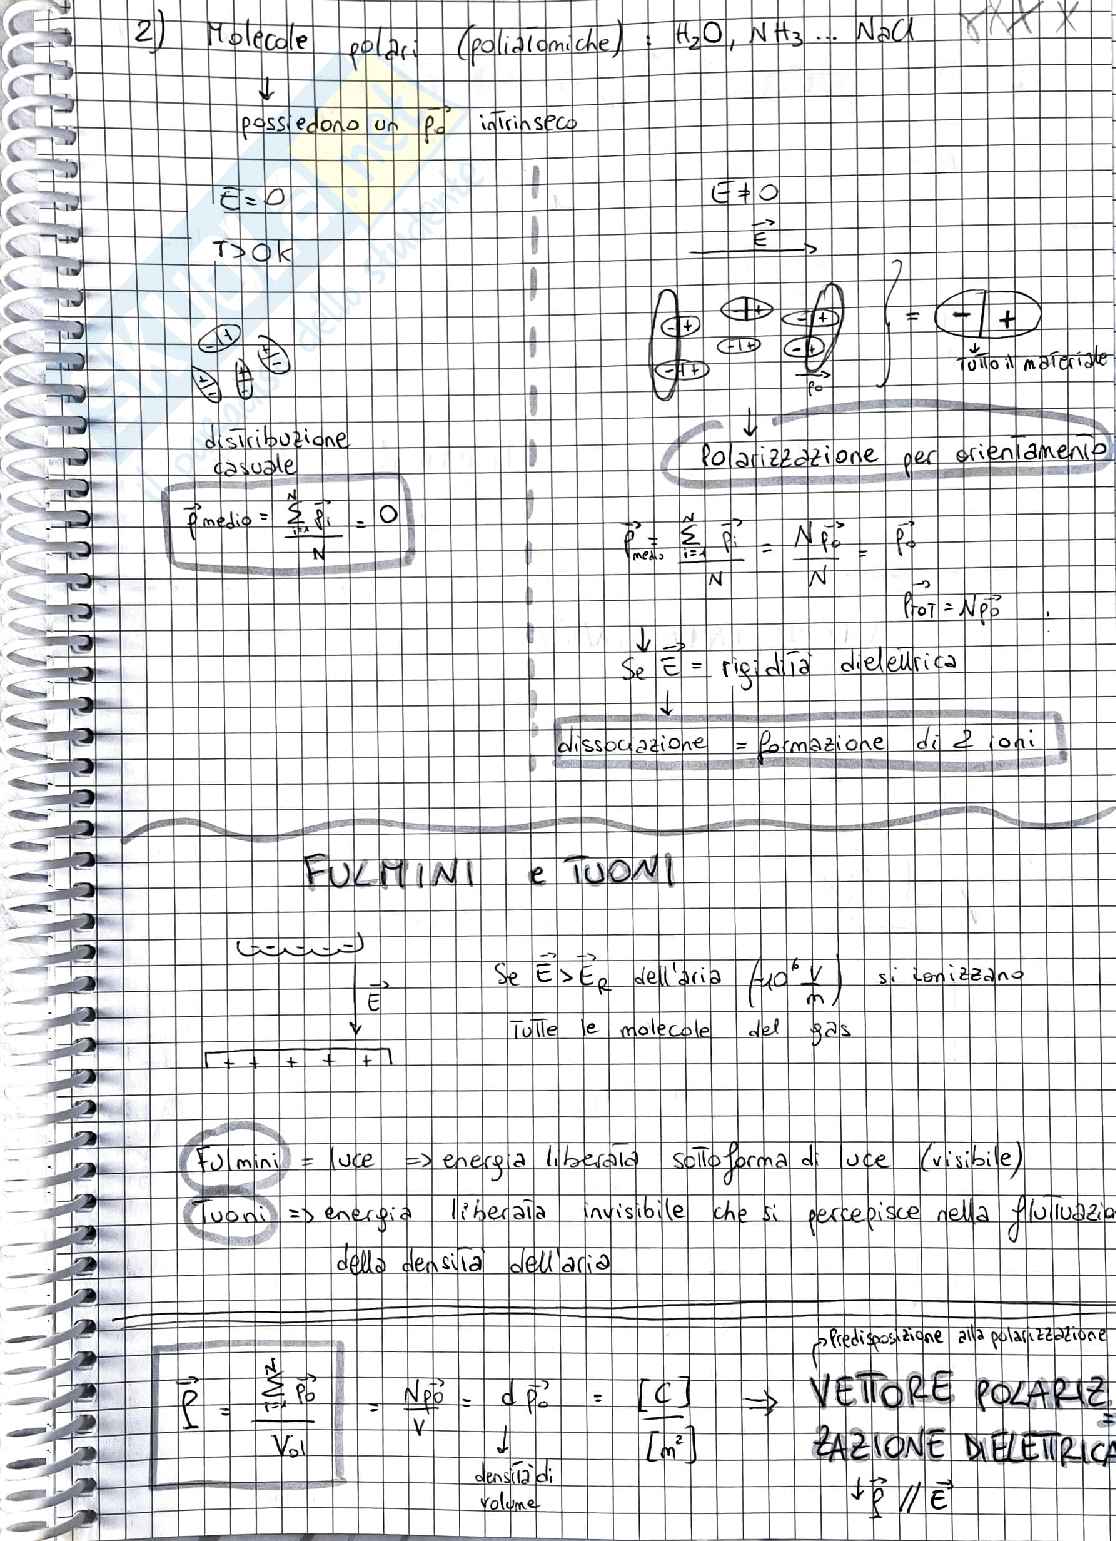 2) Molecole polari (poliatomiche) : H₂O, NH₃ ... NaCl
↓
possiedono un p⃗₀ intrinseco
E = 0
T > 0K
distribuzione
casuale
p⃗medio = Σᵢ₌₁ᴺ p⃗ᵢ / N = 0
E ≠ 0
E⃗
- +
- +
- +
- +
- +
- +
- +
p₀
= - +
↓
Tutto il materiale
↓
Polarizzazione per orientamento
p⃗medio = Σᵢ₌₁ᴺ p⃗ᵢ / N = Np⃗₀ / N = p⃗₀
p⃗TOT = Np⃗₀
↓
Se E⃗ = rigidità dielettrica
↓
dissociazione = formazione di 2 ioni
FULMINI e TUONI
E⃗
+ + + + +
Se E⃗ > E⃗R dell'aria (~10⁶ V/m) si ionizzano
Tutte le molecole del gas
Fulmini = luce => energia liberata sottoforma di luce (visibile)
Tuoni => energia liberata invisibile che si percepisce nella fluttuazio
della densità dell'aria
Predisposizione alla polarizzazione
P⃗ = Σᵢ₌₁ᴺ p⃗₀ / Vol = Np⃗₀ / V = d p⃗₀ = [C] / [m²] => VETTORE POLARIZ=
ZAZIONE DIELETTRICA
↓
densità di
volume
↓ P⃗ // E⃗